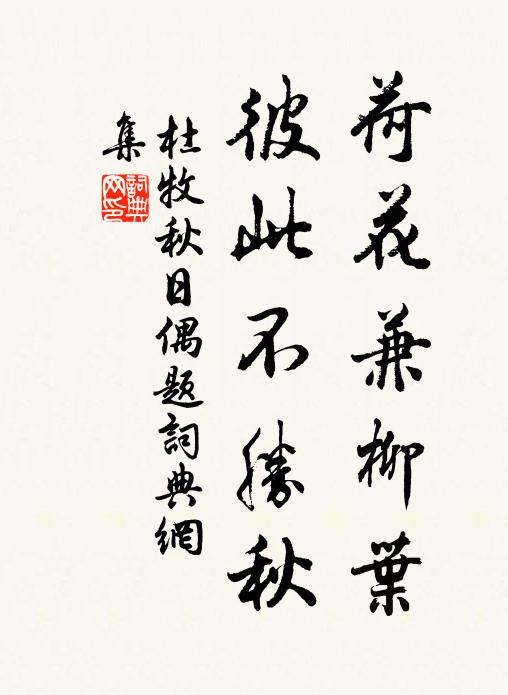 荷花兼柳葉
彼此不勝秋
杜牧秋日偶題詞典網
集
詞典网印